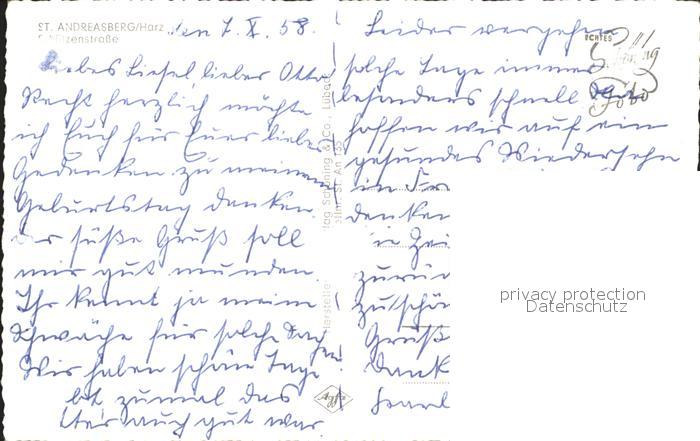 ST. ANDREASBERG/Harz
Schützenstraße
den 7. X. 58.
Liebes Liesel lieber Otto
Recht herzlich möchte
ich Euch für Euer liebes
Gedenken zu meinem
Geburtstag danken.
der süße Gruß soll
mir gut munden.
Ihr kennt ja meine
Schwäche für solche Sachen.
Wir haben schöne Tage
zumal das
auch gut war
Leider vergehen
solche Tage immer
besonders schnell
hoffen wir auf ein
gesundes Wiedersehn
im
denken
in Zei
zurück
zu schö
Gruß
Dank
ECHTES
Foto
Agfa
privacy protection
Datenschutz